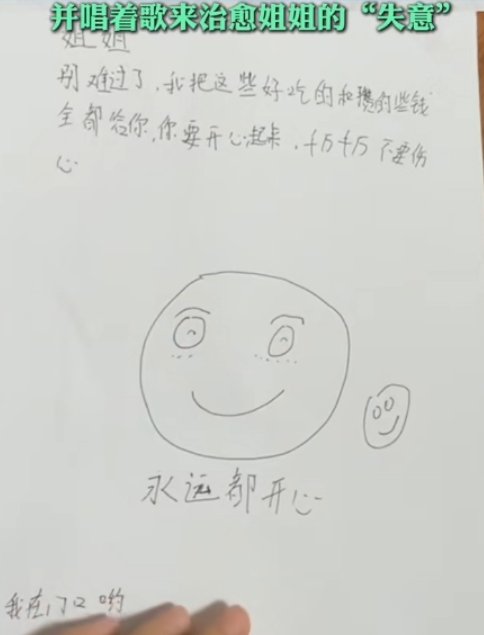 并唱着歌来治愈姐姐的“失意”
姐姐
别难过了，我把这些好吃的和攒的些钱
全都给你，你要开心起来，千万千万不要伤
心
永远都开心
我在门口哟